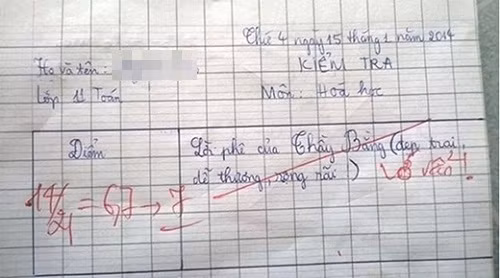 Thứ 4 ngày 15 tháng 1 năm 2014
KIỂM TRA
Họ và tên:
Lớp 11 Toán
Môn: Hoá học
Điểm
Lời phê của Thầy Bằng (đẹp trai,
dễ thương, rộng rãi)
14/21 = 6,7 → 7